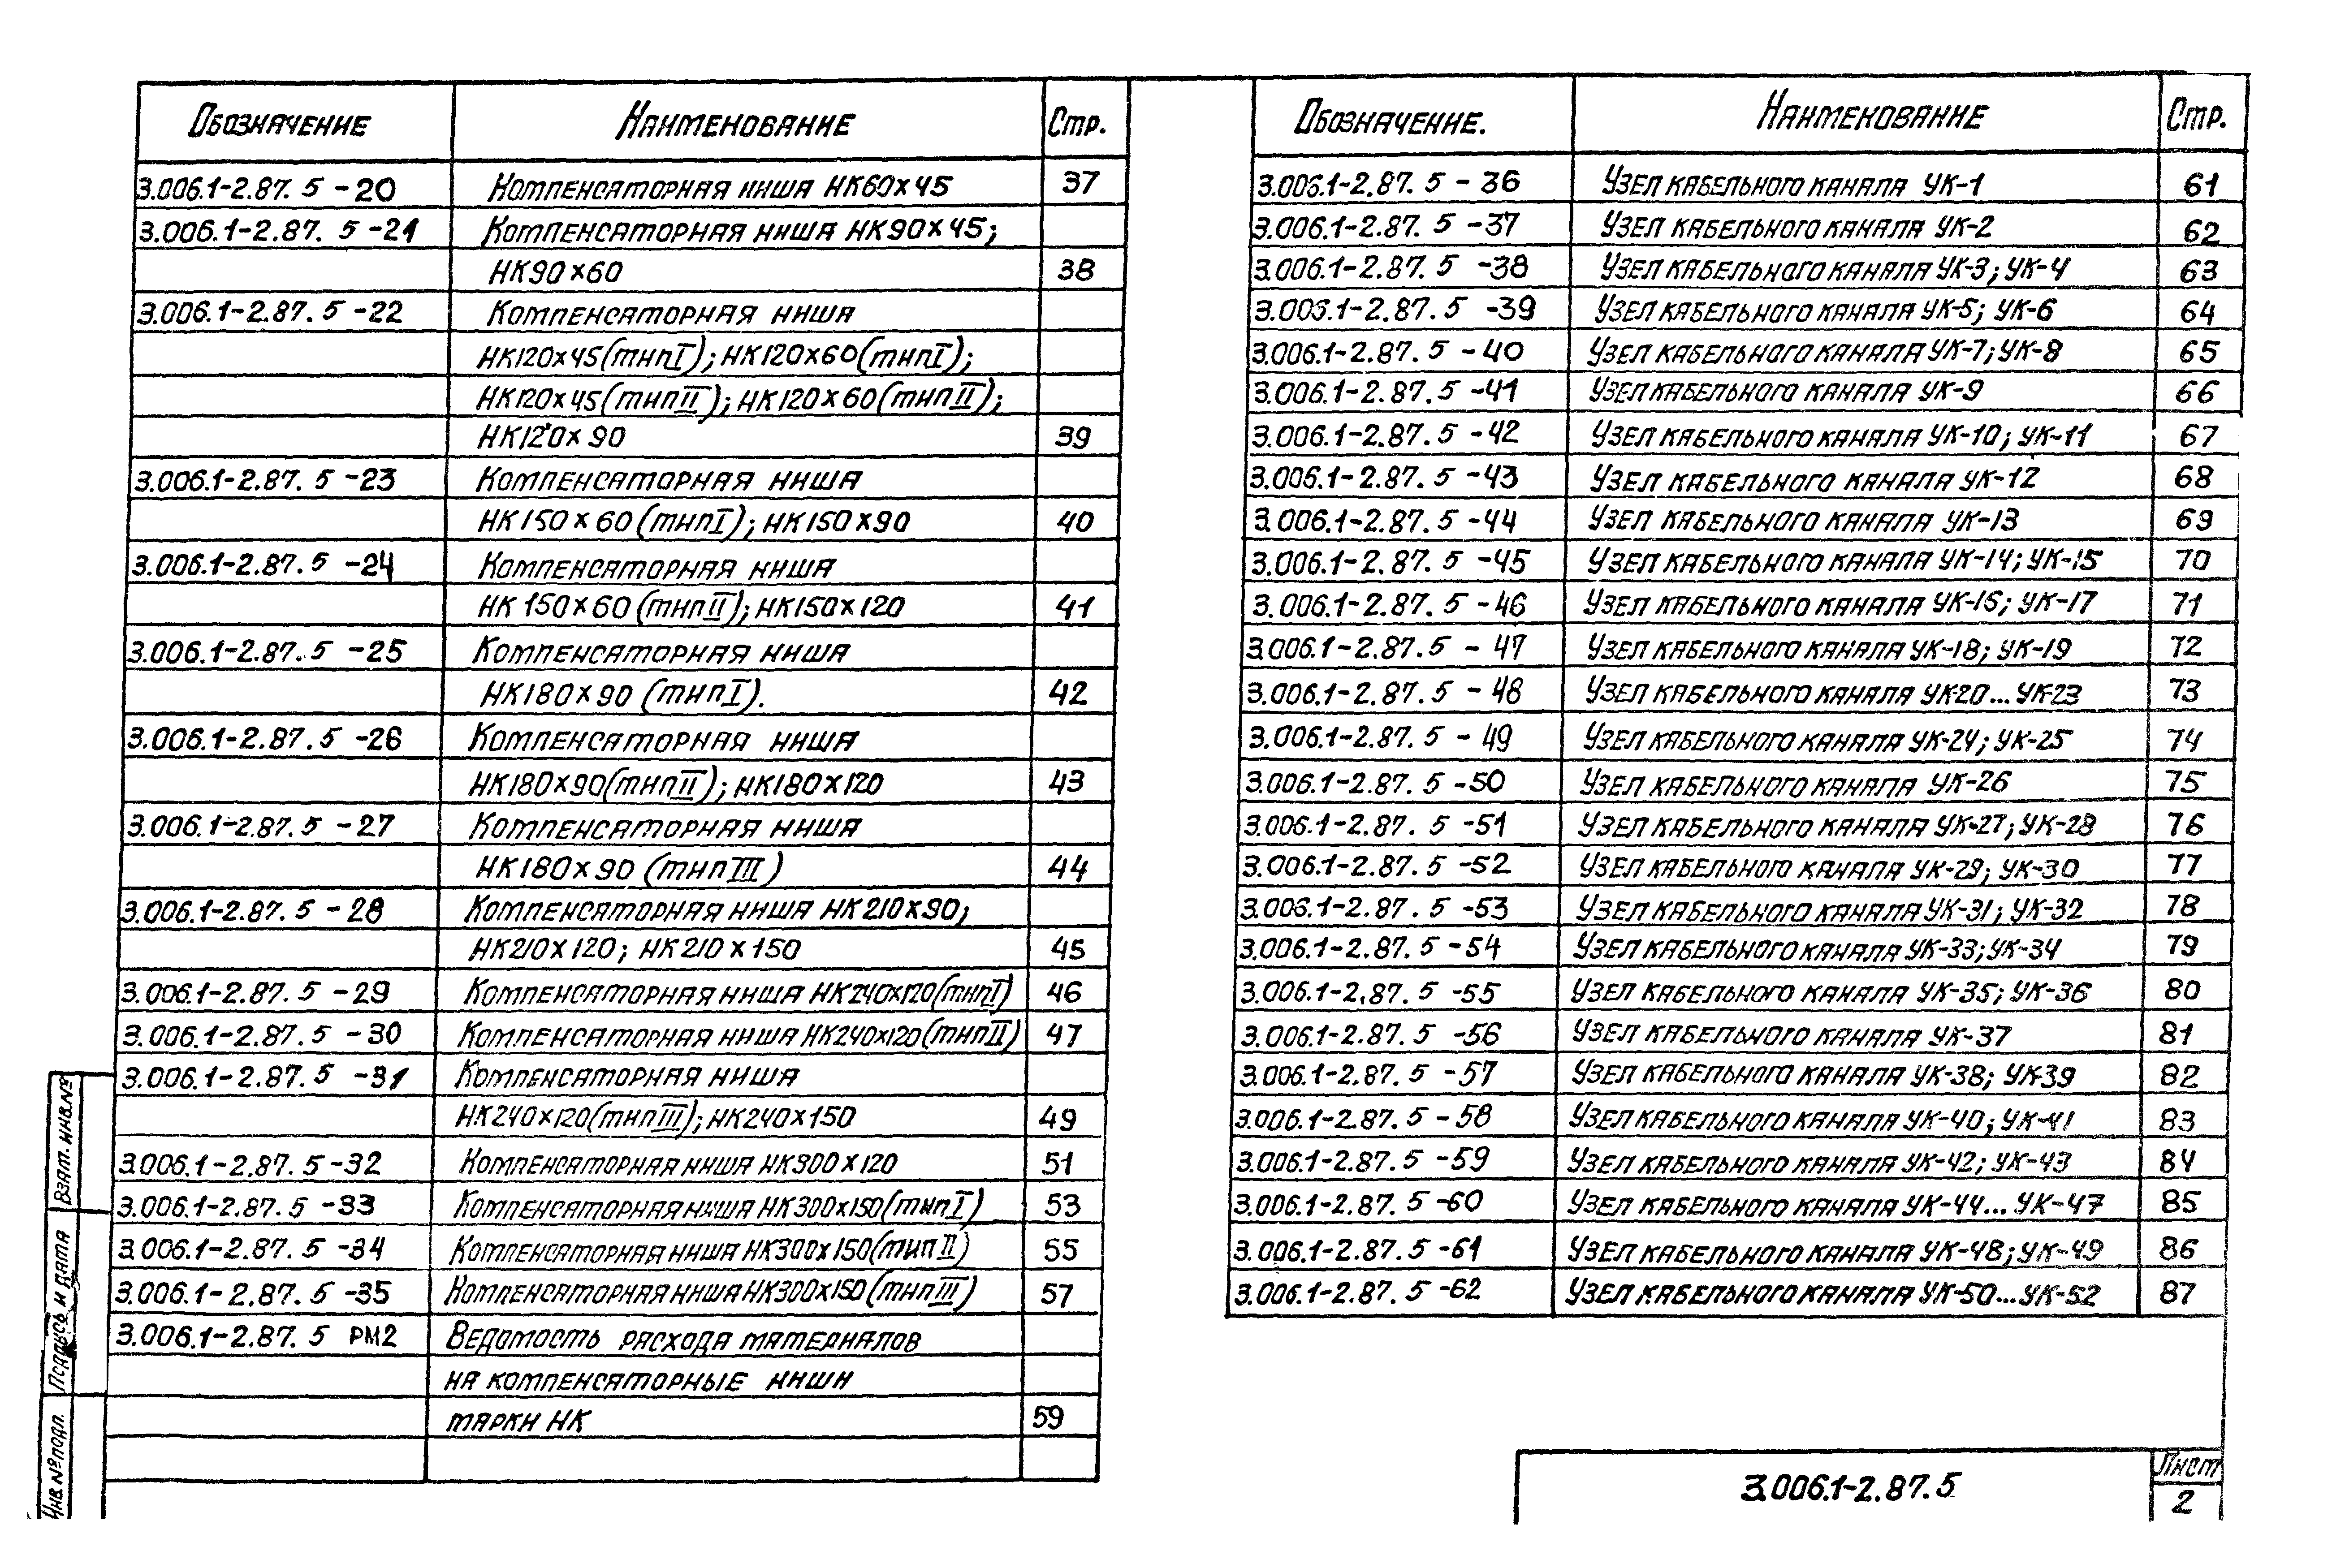 Обозначение Наименование Стр.
3.006.1-2.87. 5 -20 Компенсаторная ниша НК60×45 37
3.006.1-2.87. 5 -21 Компенсаторная ниша НК90×45;
НК90×60 38
3.006.1-2.87. 5 -22 Компенсаторная ниша
НК120×45(тип I); НК120×60(тип I);
НК120×45(тип II); НК120×60(тип II);
НК120×90 39
3.006.1-2.87. 5 -23 Компенсаторная ниша
НК150×60(тип I); НК150×90 40
3.006.1-2.87. 5 -24 Компенсаторная ниша
НК150×60(тип II); НК150×120 41
3.006.1-2.87. 5 -25 Компенсаторная ниша
НК180×90 (тип I). 42
3.006.1-2.87. 5 -26 Компенсаторная ниша
НК180×90(тип II); НК180×120 43
3.006.1-2.87. 5 -27 Компенсаторная ниша
НК180×90 (тип III) 44
3.006.1-2.87. 5 -28 Компенсаторная ниша НК210×90;
НК210×120; НК210×150 45
3.006.1-2.87. 5 -29 Компенсаторная ниша НК240×120(тип I) 46
3.006.1-2.87. 5 -30 Компенсаторная ниша НК240×120(тип II) 47
3.006.1-2.87. 5 -31 Компенсаторная ниша
НК240×120(тип III); НК240×150 49
3.006.1-2.87. 5 -32 Компенсаторная ниша НК300×120 51
3.006.1-2.87. 5 -33 Компенсаторная ниша НК300×150(тип I) 53
3.006.1-2.87. 5 -34 Компенсаторная ниша НК300×150(тип II) 55
3.006.1-2.87. 5 -35 Компенсаторная ниша НК300×150(тип III) 57
3.006.1-2.87. 5 РМ2 Ведомость расхода материалов
на компенсаторные ниши
марки НК 59
Обозначение. Наименование Стр.
3.006.1-2.87. 5 -36 Узел кабельного канала УК-1 61
3.006.1-2.87. 5 -37 Узел кабельного канала УК-2 62
3.006.1-2.87. 5 -38 Узел кабельного канала УК-3; УК-4 63
3.006.1-2.87. 5 -39 Узел кабельного канала УК-5; УК-6 64
3.006.1-2.87. 5 -40 Узел кабельного канала УК-7; УК-8 65
3.006.1-2.87. 5 -41 Узел кабельного канала УК-9 66
3.006.1-2.87. 5 -42 Узел кабельного канала УК-10; УК-11 67
3.006.1-2.87. 5 -43 Узел кабельного канала УК-12 68
3.006.1-2.87. 5 -44 Узел кабельного канала УК-13 69
3.006.1-2.87. 5 -45 Узел кабельного канала УК-14; УК-15 70
3.006.1-2.87. 5 -46 Узел кабельного канала УК-16; УК-17 71
3.006.1-2.87. 5 -47 Узел кабельного канала УК-18; УК-19 72
3.006.1-2.87. 5 -48 Узел кабельного канала УК-20... УК-23 73
3.006.1-2.87. 5 -49 Узел кабельного канала УК-24; УК-25 74
3.006.1-2.87. 5 -50 Узел кабельного канала УК-26 75
3.006.1-2.87. 5 -51 Узел кабельного канала УК-27; УК-28 76
3.006.1-2.87. 5 -52 Узел кабельного канала УК-29; УК-30 77
3.006.1-2.87. 5 -53 Узел кабельного канала УК-31; УК-32 78
3.006.1-2.87. 5 -54 Узел кабельного канала УК-33; УК-34 79
3.006.1-2.87. 5 -55 Узел кабельного канала УК-35; УК-36 80
3.006.1-2.87. 5 -56 Узел кабельного канала УК-37 81
3.006.1-2.87. 5 -57 Узел кабельного канала УК-38; УК-39 82
3.006.1-2.87. 5 -58 Узел кабельного канала УК-40; УК-41 83
3.006.1-2.87. 5 -59 Узел кабельного канала УК-42; УК-43 84
3.006.1-2.87. 5 -60 Узел кабельного канала УК-44... УК-47 85
3.006.1-2.87. 5 -61 Узел кабельного канала УК-48; УК-49 86
3.006.1-2.87. 5 -62 Узел кабельного канала УК-50... УК-52 87
Взам. инв.№
Подпись и дата
Инв.№подл.
3.006.1-2.87. 5
Лист
2